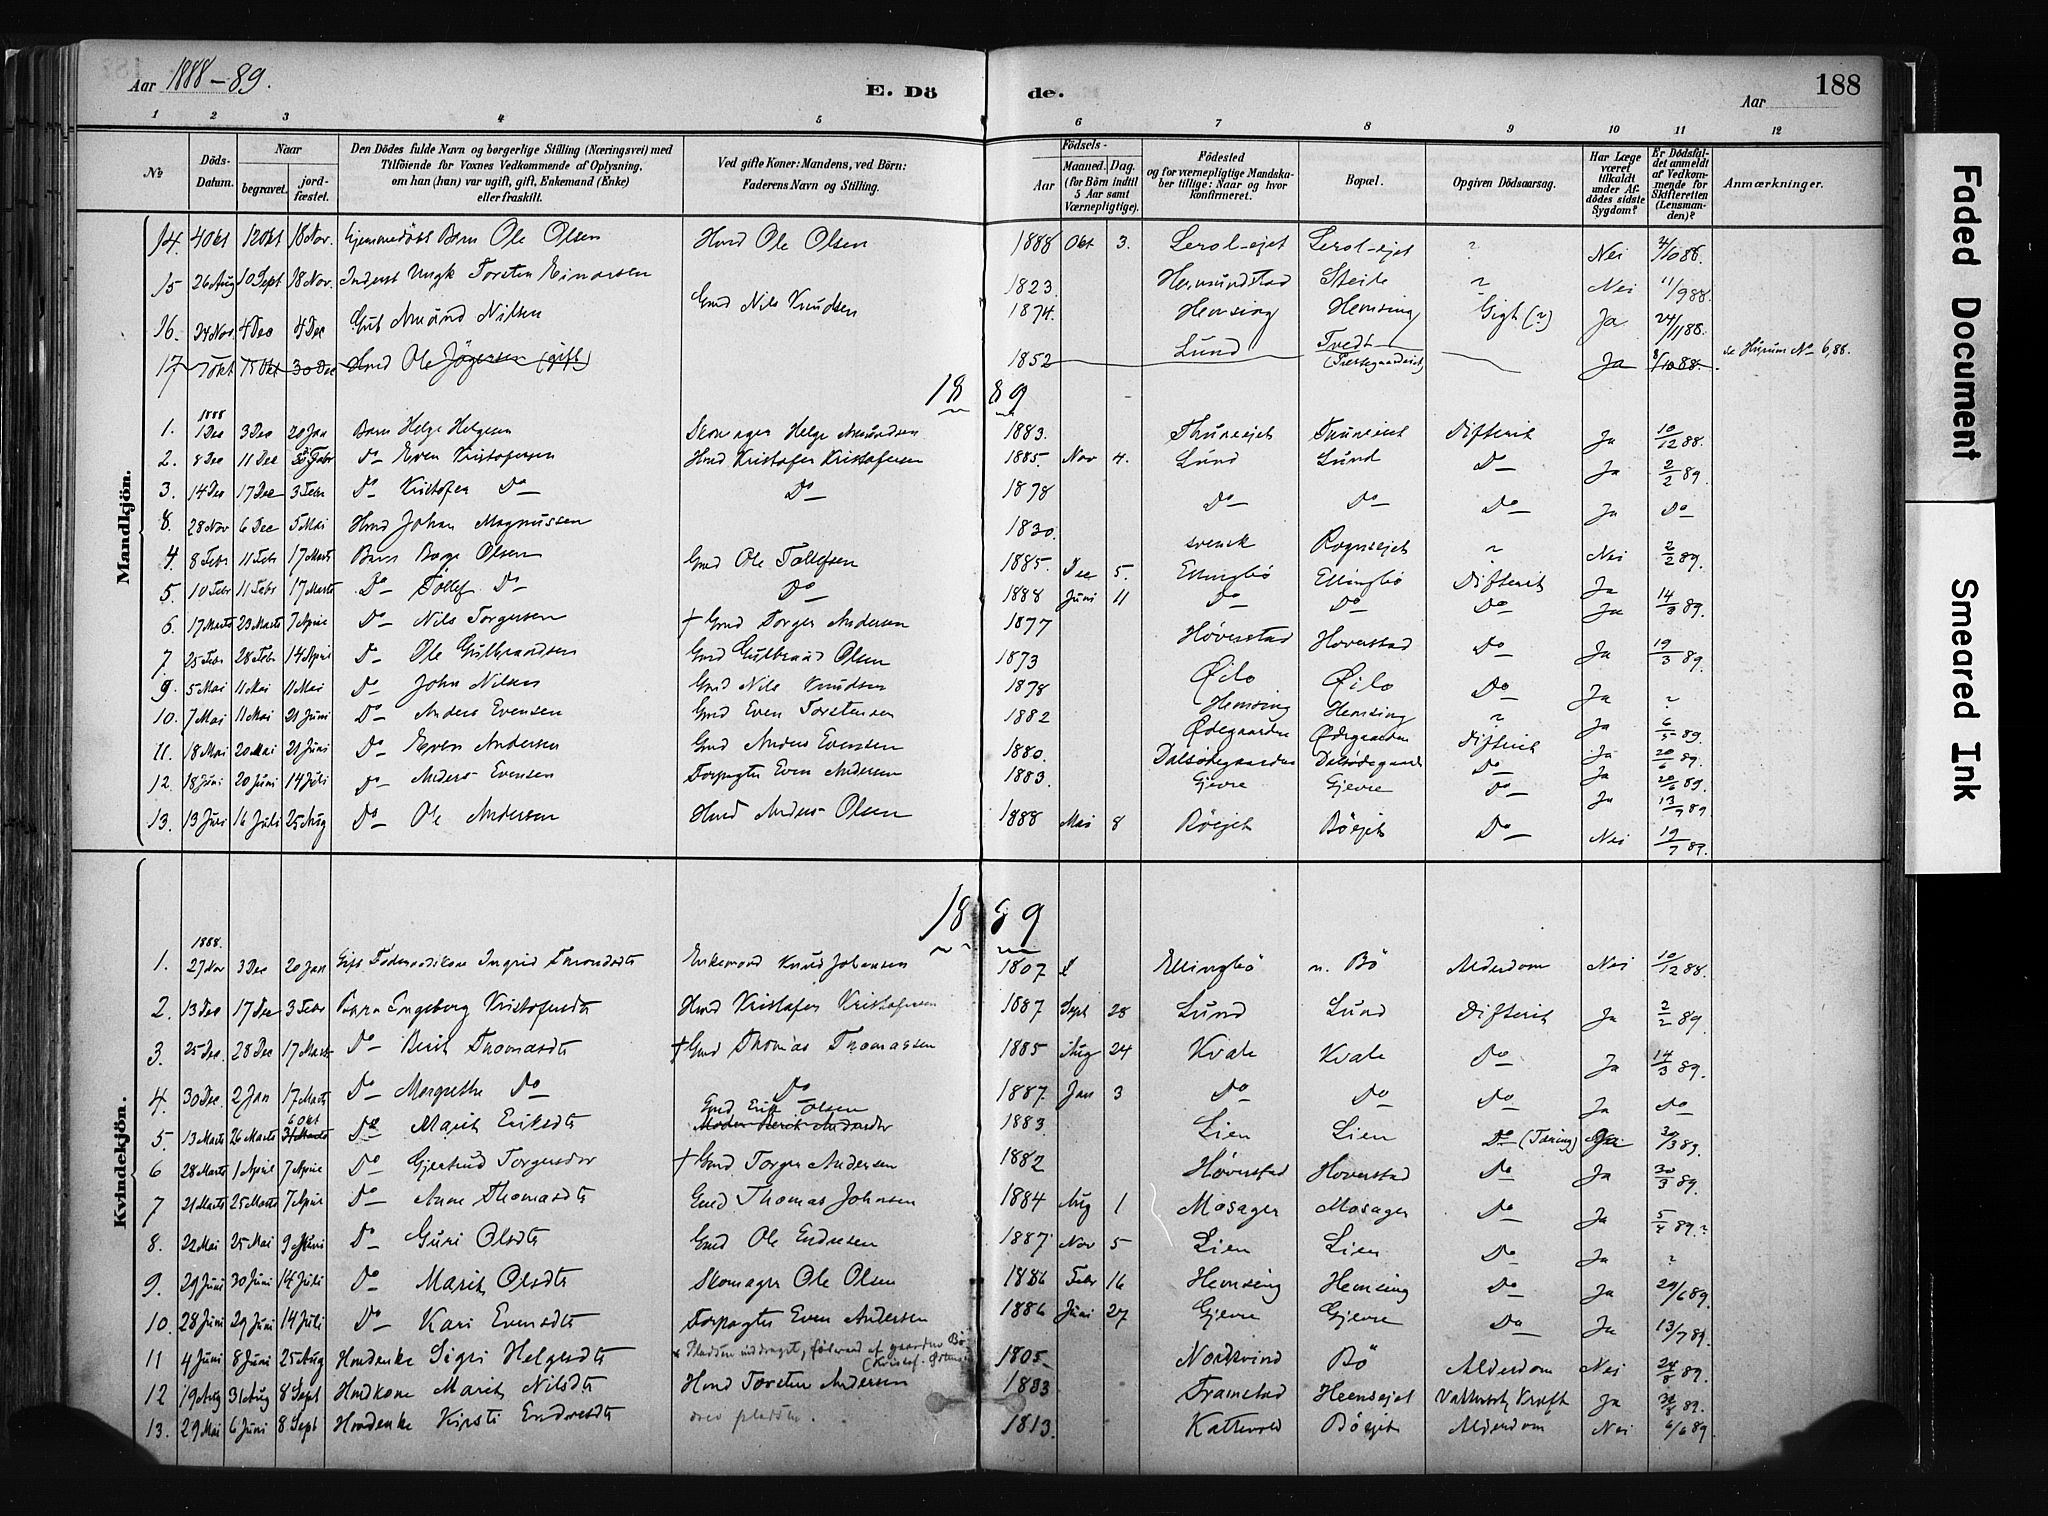 Aar 1888–89.
E. Dö
de.
Aar
188
1 2 3 4 5 6 7 8 9 10 11 12
№
Döds-Datum.
Naar
begravet.
jordfæstet.
Den Dödes fulde Navn og borgerlige Stilling (Næringsvei) med Tilföiende for Voxnes Vedkommende af Oplysning, om han (hun) var ugift, gift, Enkemand (Enke) eller fraskilt.
Ved gifte Koner: Mandens, ved Börn: Faderens Navn og Stilling.
Födsels-
Aar
Maaned. Dag.
(for Börn indtil 5 Aar samt Værnepligtige).
Födested og for værnepligtige Mandskaber tillige: Naar og hvor konfirmeret.
Bopæl.
Opgiven Dödsaarsag.
Har Læge været tilkaldt under Afdödes sidste Sygdom?
Er Dödsfaldet anmeldt af Vedkommende for Skifteretten (Lensmanden)?
Anmærkninger.
Mandkjön.
14. 4 Okt 12 Okt 18 Nov. Hjemmedöbt Barn Ole Olsen Hmd Ole Olsen 1888 Okt 3. Lerol-ejet Lerol-ejet ? Nei 31/10 88.
15 26 Aug 10 Sept 18 Nov. Inderst Ungk Torsten Einarsen 1823. Hemsundstad Steile ? Nei 11/9 88.
16. 24 Nov. 4 Dec 4 Dec Gut Amund Nilsen Gmd Nils Knudsen 1874. Hemsing Hemsing Gigt (?) Ja 24/11 88.
17 7 Okt 15 Okt 30 Dec Hmd Ole Jögersen (gift) 1852 Lund Tvedt (Præstegaardseiet) Ja 8/10 88. se Hurum No 6, 88.
1889
1. 1888 1 Dec 3 Dec 20 Jan Barn Helge Helgesen Skomager Helge Amundsen 1883. Thuneejet Thuneejet Difterit Ja 10/12 88.
2. 8 Dec 11 Dec 3 Febr Do Even Kristofersen Hmd Kristofer Kristofersen 1885. Nov 4. Lund Lund Do Ja 2/2 89.
3. 14 Dec 17 Dec 3 Febr Do Kristofer Do Do 1878 Do Do Do Ja Do
8. 28 Nov 6 Dec 5 Mai Hmd Johan Magnussen 1830. svensk Rognsejet ? Nei 2/2 89.
4. 8 Febr 11 Febr 17 Marts Barn Boye Olsen Gmd Ole Tollefsen 1885. Dec 5. Ellingbö Ellingbö Difterit Ja
5. 10 Febr 11 Febr 17 Marts Do Tollef Do Do 1888 Juni 11 Do Do Do Ja 14/3 89.
6. 17 Marts 23 Marts 7 April Do Nils Torgersen † Gmd Torger Andersen 1877 Höverstad Hoverstad Do Ja 19/3 89.
7. 25 Febr 28 Febr 14 April Do Ole Gulbrandsen Gmd Gulbrand Olsen 1873 Øilo Øilo Do Ja ?
9. 5 Mai 11 Mai 11 Mai Do John Nilsen Gmd Nils Knudsen 1878 Hemsing Hemsing ? Ja 6/5 89.
10. 7 Mai 11 Mai 21 Juni Do Anders Evensen Gmd Even Torstensen 1882 Ødegaarden Ødegaarden Difterit Ja 20/6 89.
11. 18 Mai 20 Mai 21 Juni Do Even Andersen Gmd Anders Evensen 1880. Dalsödegaarden Dalsödegaard Do Ja 20/6 89.
12. 18 Juni 20 Juni 14 Juli Do Anders Evensen Forpagter Even Andersen 1883. Gjevre Gjevre Do Ja 13/7 89.
13. 13 Juli 16 Juli 25 Aug Do Ole Andersen Hmd Anders Olsen 1888 Mai 8 Böejet Böejet Do Nei 19/7 89.
Kvindekjön.
1889
1. 1888. 27 Nov 3 Dec 20 Jan Gift Föderaadskone Ingrid Throndsdtr Enkemand Knud Johansen 1807 Ellingbö n. Bö Alderdom Nei 10/12 88.
2. 13 Dec 17 Dec 3 Febr Barn Ingeborg Kristofersdtr Hmd Kristofer Kristofersen 1887 Sept 28 Lund Lund Difterit Ja 2/2 89.
3. 25 Dec. 28 Dec 17 Marts Do Berit Thomasdtr † Gmd Thomas Thomassen 1885 Aug 24 Kvale Kvale Do Ja 14/3 89.
4. 30 Dec. 2 Jan 17 Marts Do Margrethe Do Do 1887 Jan 3 Do Do Do Ja Do
5. 13 Marts 26 Marts 6 Okt 31 Marts Do Marit Eriksdtr Gmd Erik Olsen 1883. Lien Lien Do (Tæring) Ja 30/3 89.
6 28 Marts 1 April 7 April Do Gjertrud Torgersdtr † Gmd Torger Andersen 1882 Höverstad Hoverstad Do Ja 30/3 89.
7 21 Marts 25 Marts 7 April Do Anne Thomasdtr Gmd Thomas Johnsen 1884 Aug 1 Mosager Mosager Do Ja 5/4 89. ?
8. 22 Mai 25 Mai 9 Juni Do Guri Olsdtr Gmd Ole Endresen 1887. Nov 5 Lien Lien Do Ja ?
9. 29 Juni 30 Juni 14 Juli Do Marit Olsdtr Skomager Ole Olsen 1886 Febr 16 Hemsing Hemsing Do Ja 29/6 89.
10. 28 Juni 29 Juni 14 Juli Do Kari Evensdtr Forpagter Even Andersen 1886 Juni 27 Gjevre Gjevre Do Ja 13/7 89.
11 4 Juni 8 Juni 25 Aug Hmdenke Sigri Helgesdtr Pladsen inddraget, af gaarden Bö (Kristof. 1805. Nordvind Bö Alderdom Nei 24/8 89.
12 19 Aug 31 Aug 8 Sept Hmdkone Marit Nilsdtr Hmd Torsten Andersen 1833 Framstad Heensejet Kræft Ja 31/8 89.
13. 29 Mai 6 Juni 8 Sept Hmdenke Kirsti Endresdtr drev pladsen. 1813. Kattevold Böejet Alderdom Nei 6/6 89.
Faded Document
Smeared Ink